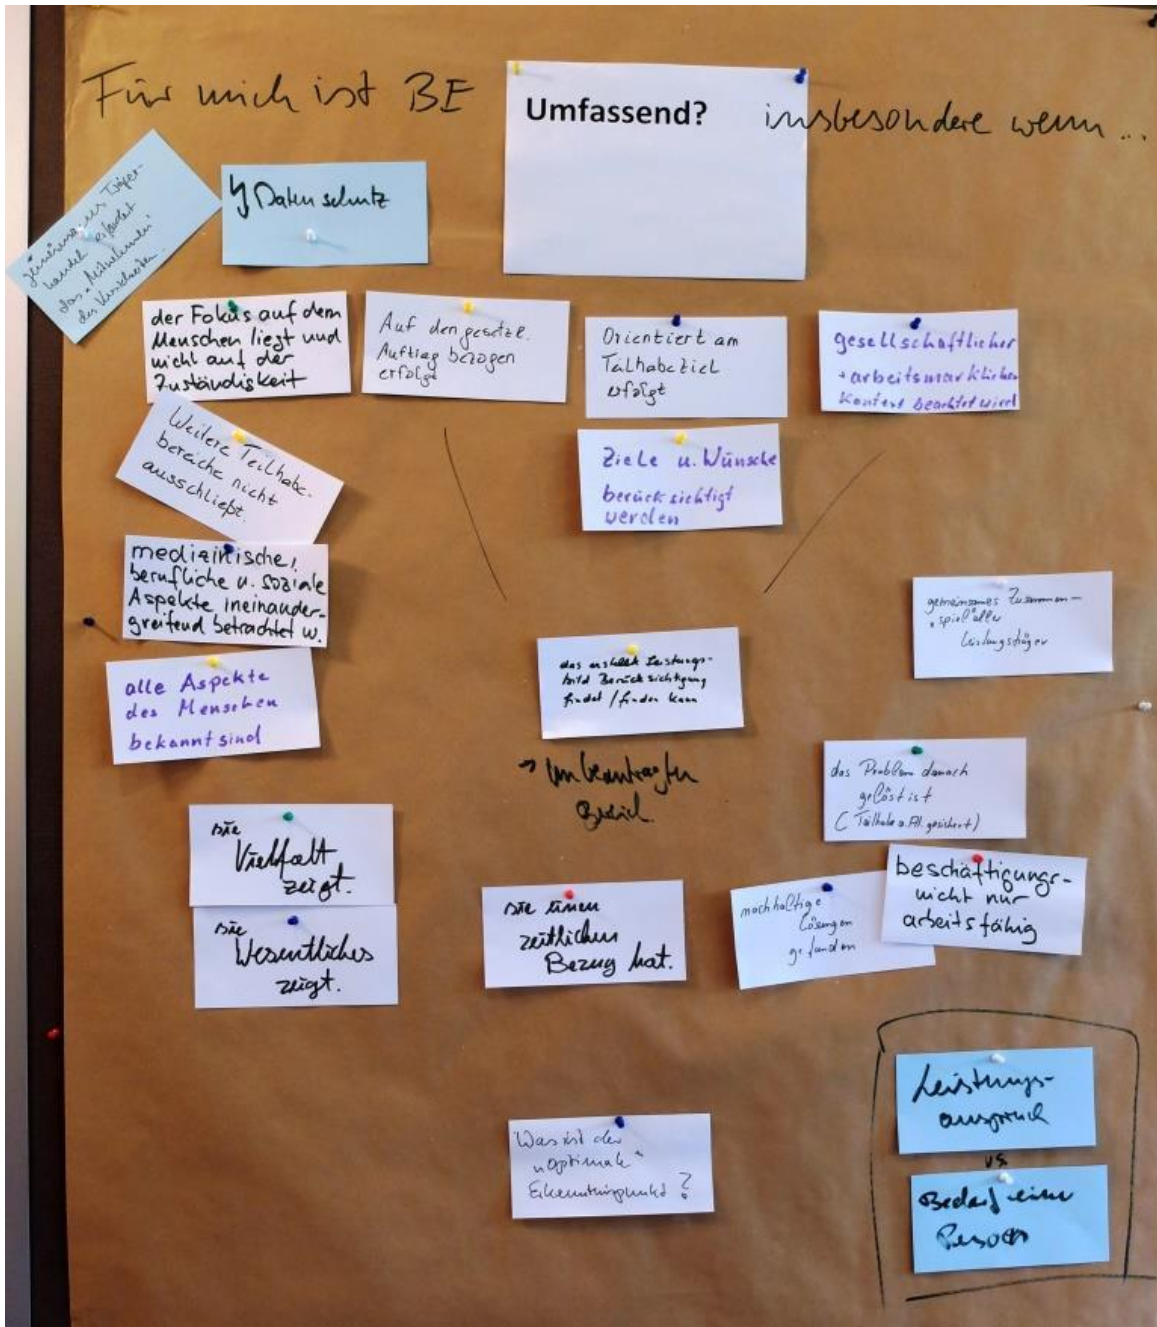 Für mich ist BE
Umfassend?
insbesondere wenn...
gemeinsames Träger-
handel erfordert
das "Mitnehmen"
des Versicherten.
↯ Datenschutz
der Fokus auf dem
Menschen liegt und
nicht auf der
Zuständigkeit
Auf den gesetzl.
Auftrag bezogen
erfolgt
Orientiert am
Teilhabeziel
erfolgt
gesellschaftlicher
+ arbeitsmarklicher
Kontext beachtet wird
Weitere Teilhabe-
bereiche nicht
ausschließt.
Ziele u. Wünsche
berücksichtigt
werden
medizinische,
berufliche u. soziale
Aspekte ineinander-
greifend betrachtet w.
gemeinsames Zusammen-
spiel aller
Leistungsträger
alle Aspekte
des Menschen
bekannt sind
das erstellte Leistungs-
bild Berücksichtigung
findet / finden kann
→ im beantragten
Bereich.
das Problem danach
gelöst ist
(Teilhabe a. Al. gesichert)
sie
Vielfalt
zeigt.
beschäftigungs-
nicht nur
arbeitsfähig
sie
Wesentliches
zeigt.
sie einen
zeitlichen
Bezug hat.
nachhaltige
Lösungen
gefunden
Leistungs-
anspruch
vs
Bedarf einer
Person
Was ist der
"optimale"
Erkenntnispunkt?